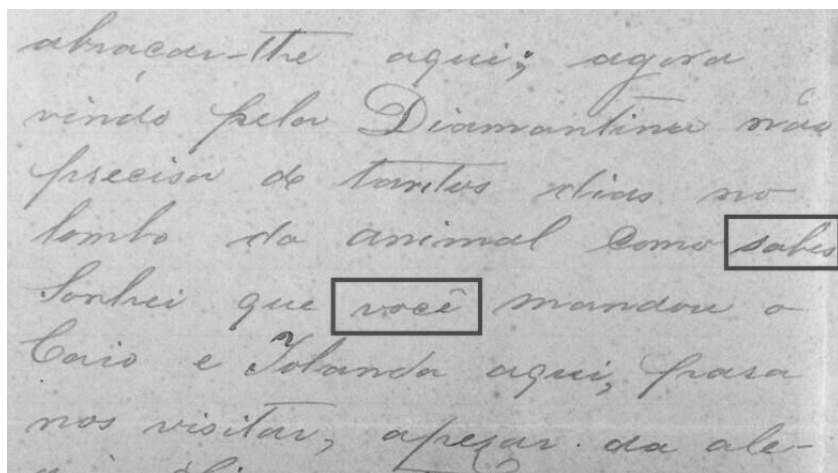 abraçar-lhe aqui; agora
vindo pela Diamantina não
precisa de tantos dias no
lombo da animal como sabes
Sonhei que você mandou o
Caio e Iolanda aqui, para
nos visitar, apezar da ale-